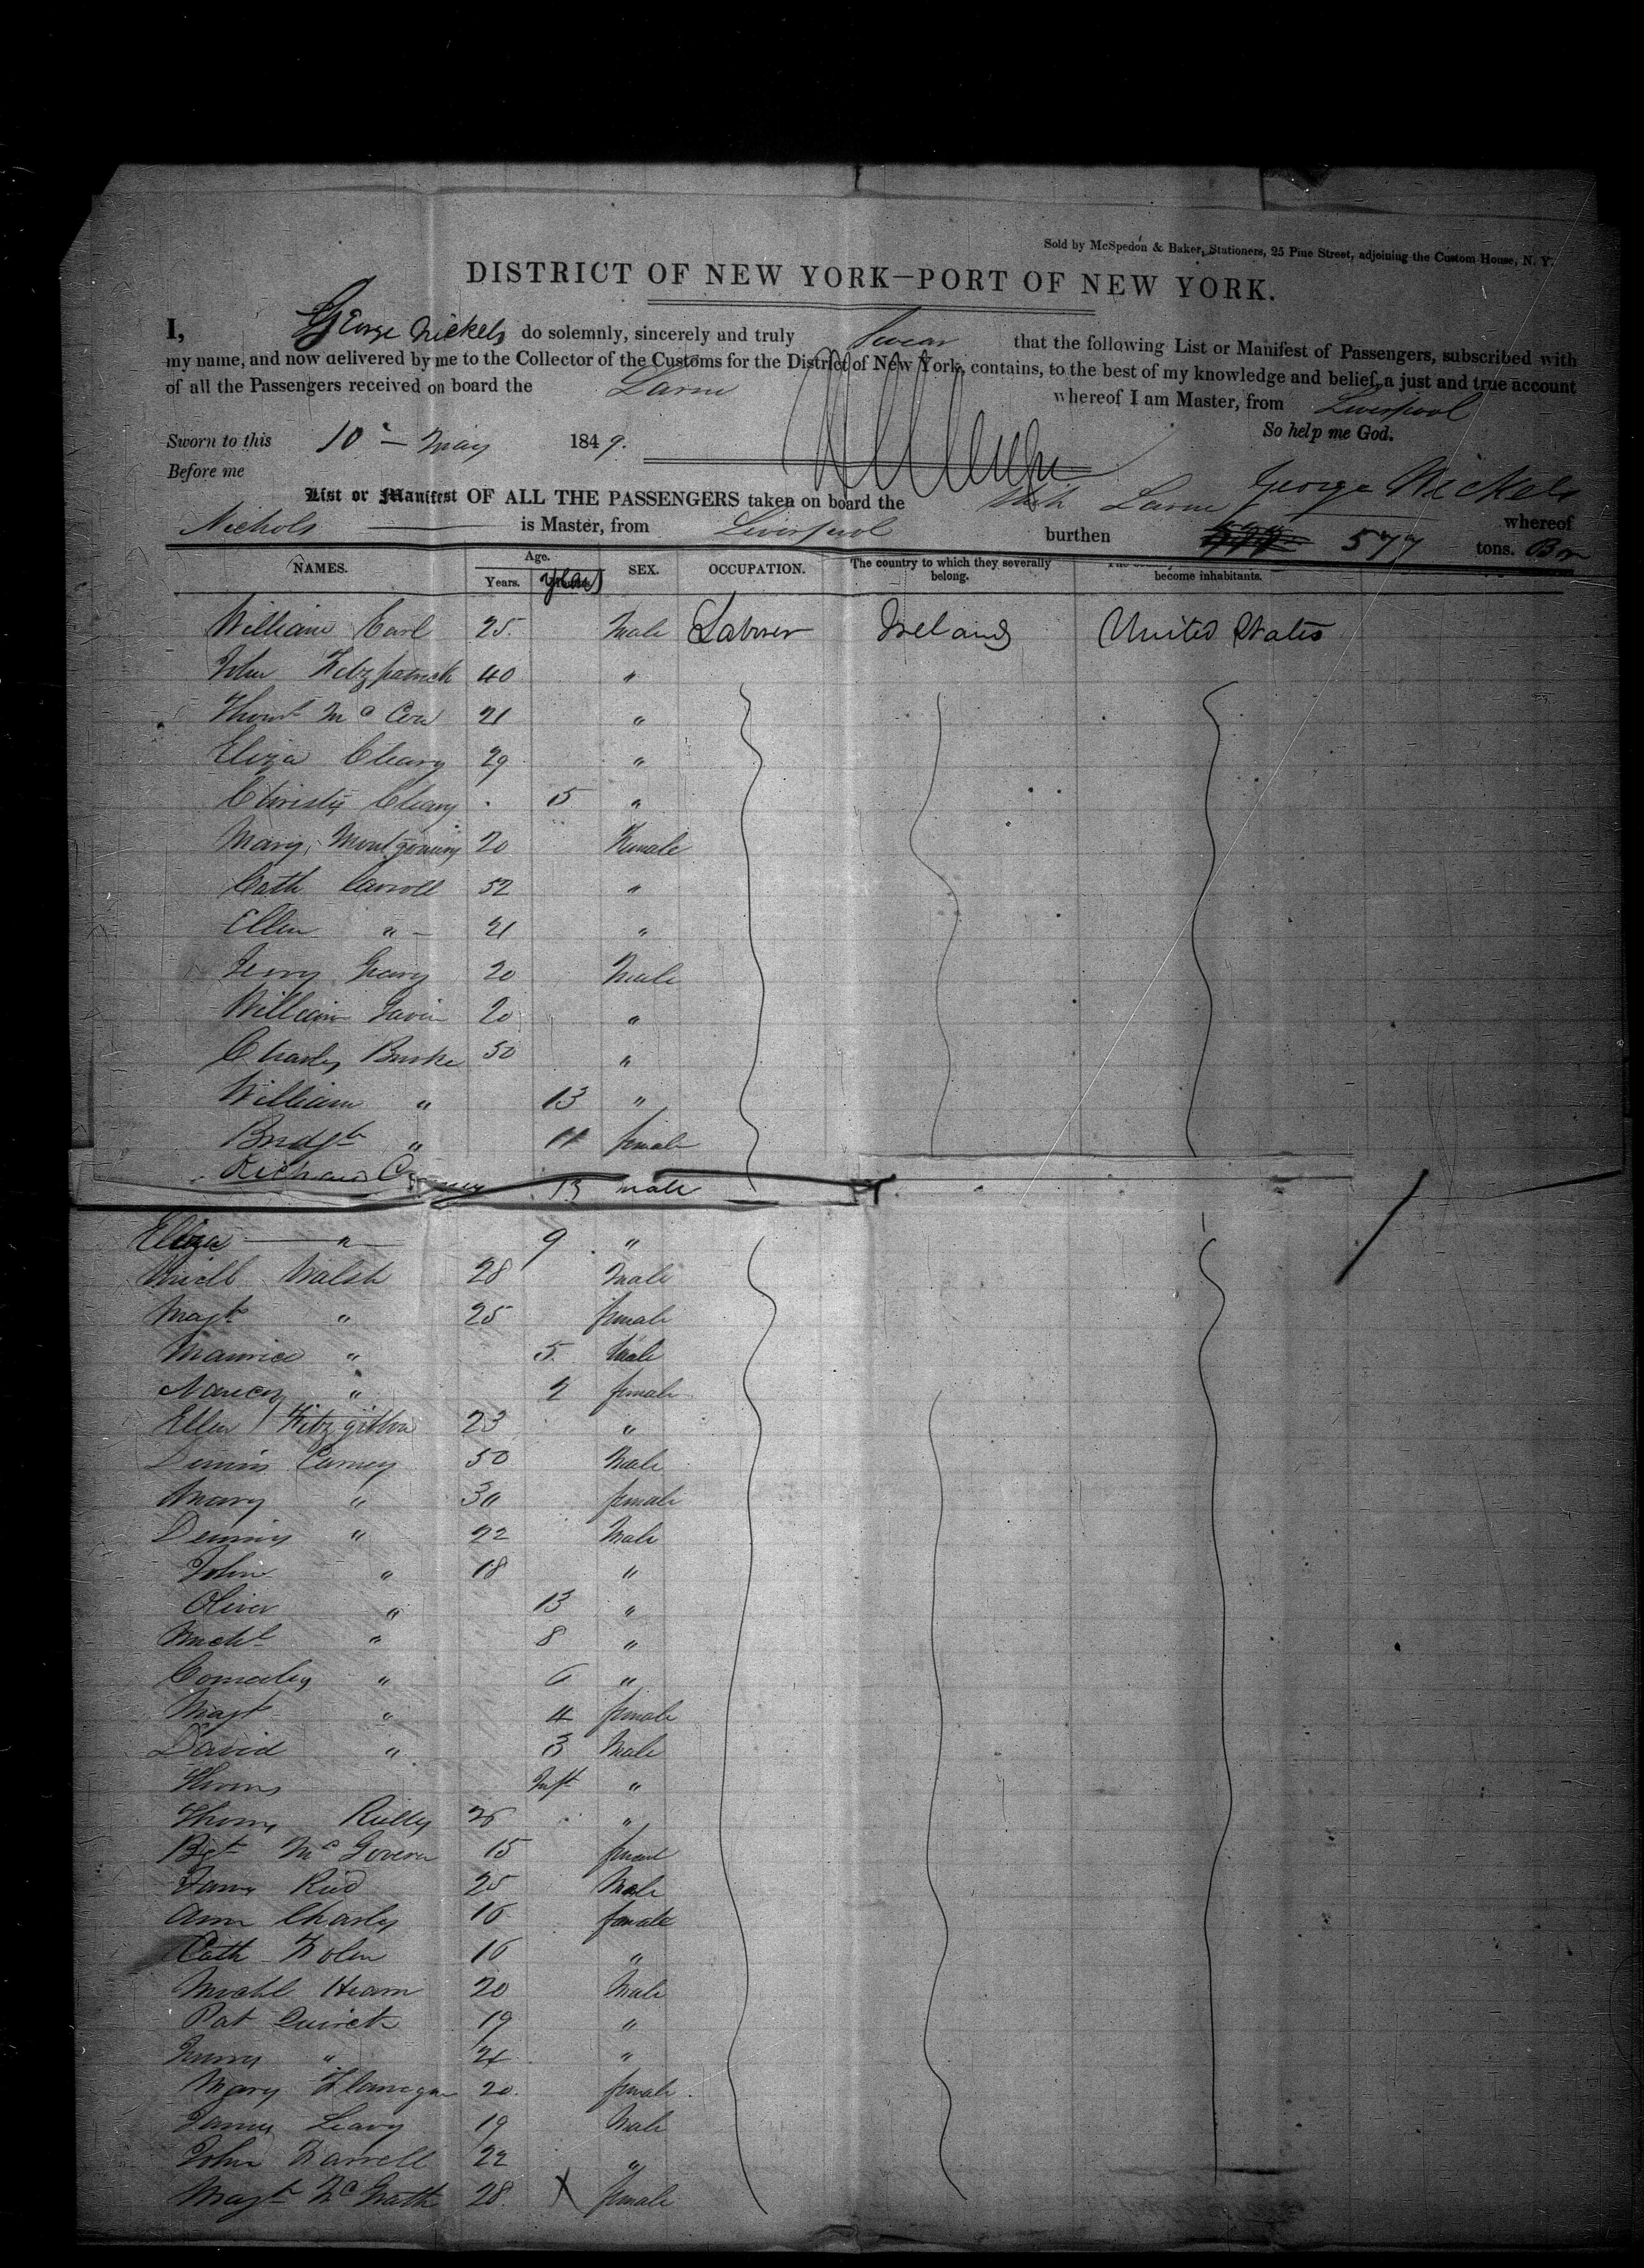 Sold by McSpedon & Baker, Stationers, 25 Pine Street, adjoining the Custom House, N. Y.
DISTRICT OF NEW YORK—PORT OF NEW YORK.
I, George Nickels do solemnly, sincerely and truly Swear that the following List or Manifest of Passengers, subscribed with
my name, and now delivered by me to the Collector of the Customs for the District of New York, contains, to the best of my knowledge and belief, a just and true account
of all the Passengers received on board the whereof I am Master, from Liverpool
Sworn to this 10 — May 1849. So help me God.
Before me George Nickels
List or Manifest OF ALL THE PASSENGERS taken on board the whereof
Nichols is Master, from Liverpool burthen 577 tons.
NAMES. Age. Years. years SEX. OCCUPATION. The country to which they severally belong. become inhabitants.
William Earl 25 Male Laborer Ireland United States
John Fitzpatrick 40 "
Thoms Mc 21 "
Eliza Cleary 29 "
Christy Cleary 15 "
Mary Montgomery 20 Female
Cath Carroll 52 "
Ellen " 21 "
Jerry Geary 20 Male
William Gavin 20 "
Charles Burke 50 "
William " 13 "
Bridgt " 11 female
Richard 13 male
Eliza " 9 "
Michl Walsh 28 Male
Magt " 25 female
Maurice " 5 Male
Nancy " 2 female
Ellen Fitzgibbon 23 "
Dennis Carney 50 Male
Mary " 30 female
Dennis " 22 Male
John " 18 "
Oliver " 13 "
Michl " 8 "
" 6 "
Magt " 4 female
David " 3 Male
Thoms Inft "
Thoms Reilly 26 "
Bgt McGovern 15 female
James Reid 25 Male
Ann Charles 16 female
Cath 16 "
Michl Hearn 20 Male
Pat Quirck 19 "
" 21 "
Mary Flanigan 20 female
James Leavy 19 Male
John Farrell 22 "
Magt McGrath 28 X female